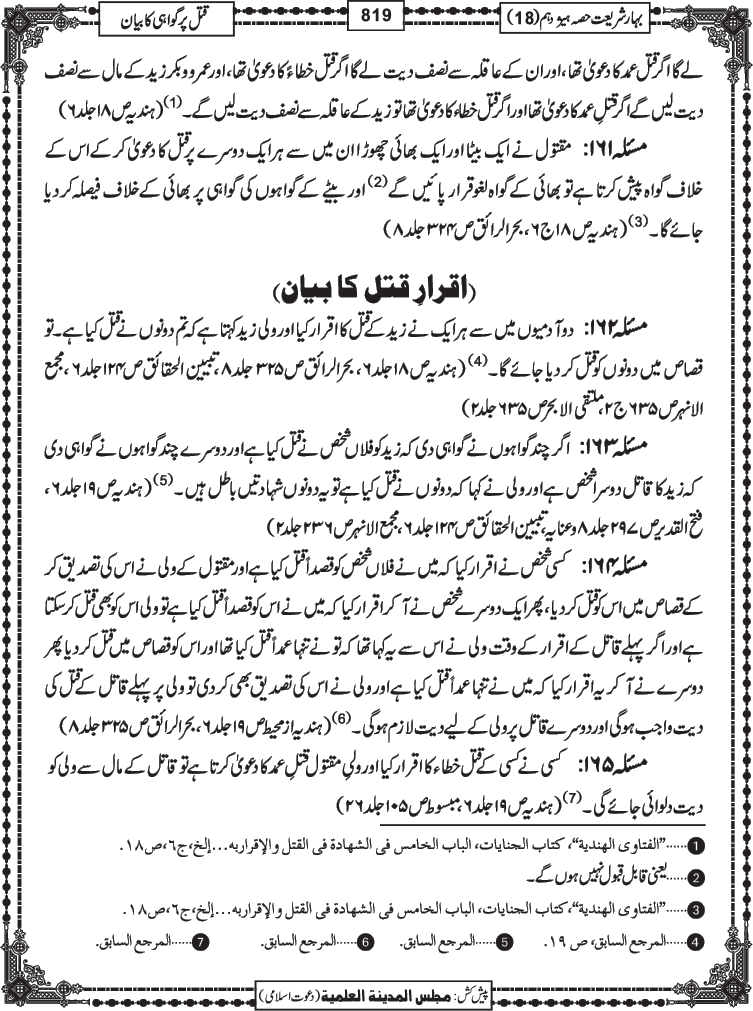 بہارِ شریعت حصہ ہیژدہم (18)
819
قتل پر گواہی کا بیان
لے گا اگر قتل عمد کا دعویٰ تھا، اور ان کے عاقلہ سے نصف دیت لے گا اگر قتل خطاءً کا دعویٰ تھا، اور عمرو و بکر زید کے مال سے نصف
دیت لیں گے اگر قتلِ عمد کا دعویٰ تھا اور اگر قتل خطاء کا دعویٰ تھا تو زید کے عاقلہ سے نصف دیت لیں گے۔(1) (ہندیہ ص ۱۸ جلد ۶)
مسئلہ ۱۶۱: مقتول نے ایک بیٹا اور ایک بھائی چھوڑا ان میں سے ہر ایک دوسرے پر قتل کا دعویٰ کر کے اس کے
خلاف گواہ پیش کرتا ہے تو بھائی کے گواہ لغو قرار پائیں گے(2) اور بیٹے کے گواہوں کی گواہی پر بھائی کے خلاف فیصلہ کر دیا
جائے گا۔(3) (ہندیہ ص ۱۸ ج ۶، بحر الرائق ص ۳۲۴ جلد ۸)
(اقرارِ قتل کا بیان)
مسئلہ ۱۶۲: دو آدمیوں میں سے ہر ایک نے زید کے قتل کا اقرار کیا اور ولی زید کہتا ہے کہ تم دونوں نے قتل کیا ہے۔ تو
قصاص میں دونوں کو قتل کر دیا جائے گا۔(4) (ہندیہ ص ۱۸ جلد ۶، بحر الرائق ص ۳۲۵ جلد ۸، تبیین الحقائق ص ۱۲۴ جلد ۶، مجمع
الانہر ص ۶۳۵ ج ۲، ملتقی الابحر ص ۶۳۵ جلد ۲)
مسئلہ ۱۶۳: اگر چند گواہوں نے گواہی دی کہ زید کو فلاں شخص نے قتل کیا ہے اور دوسرے چند گواہوں نے گواہی دی
کہ زید کا قاتل دوسرا شخص ہے اور ولی نے کہا کہ دونوں نے قتل کیا ہے تو یہ دونوں شہادتیں باطل ہیں۔(5) (ہندیہ ص ۱۹ جلد ۶،
فتح القدیر ص ۲۹۷ جلد ۸ و عنایہ، تبیین الحقائق ص ۱۲۴ جلد ۶، مجمع الانہر ص ۲۳۶ جلد ۲)
مسئلہ ۱۶۴: کسی شخص نے اقرار کیا کہ میں نے فلاں شخص کو قصداً قتل کیا ہے اور مقتول کے ولی نے اس کی تصدیق کر
کے قصاص میں اس کو قتل کر دیا، پھر ایک دوسرے شخص نے آ کر اقرار کیا کہ میں نے اس کو قصداً قتل کیا ہے تو ولی اس کو بھی قتل کر سکتا
ہے اور اگر پہلے قاتل کے اقرار کے وقت ولی نے اس سے یہ کہا تھا کہ تو نے تنہا عمداً قتل کیا تھا اور اس کو قصاص میں قتل کر دیا پھر
دوسرے نے آ کر یہ اقرار کیا کہ میں نے تنہا عمداً قتل کیا ہے اور ولی نے اس کی تصدیق بھی کر دی تو ولی پر پہلے قاتل کے قتل کی
دیت واجب ہوگی اور دوسرے قاتل پر ولی کے لیے دیت لازم ہوگی۔(6) (ہندیہ از محیط ص ۱۹ جلد ۶، بحر الرائق ص ۳۲۵ جلد ۸)
مسئلہ ۱۶۵: کسی نے کسی کے قتل خطاء کا اقرار کیا اور ولیِ مقتول قتلِ عمد کا دعویٰ کرتا ہے تو قاتل کے مال سے ولی کو
دیت دلوائی جائے گی۔(7) (ہندیہ ص ۱۹ جلد ۶، مبسوط ص ۱۰۵ جلد ۲۶)
1 ......"الفتاوی الهندیة"، کتاب الجنایات، الباب الخامس فی الشهادة فی القتل والإقرار به...إلخ، ج٦، ص١٨.
2 ......یعنی قابل قبول نہیں ہوں گے۔
3 ......"الفتاوی الهندیة"، کتاب الجنایات، الباب الخامس فی الشهادة فی القتل والإقرار به...إلخ، ج٦، ص١٨.
4 ......المرجع السابق، ص ١٩. 5 ......المرجع السابق. 6 ......المرجع السابق. 7 ......المرجع السابق.
پیش کش: مجلس المدینة العلمیة (دعوت اسلامی)